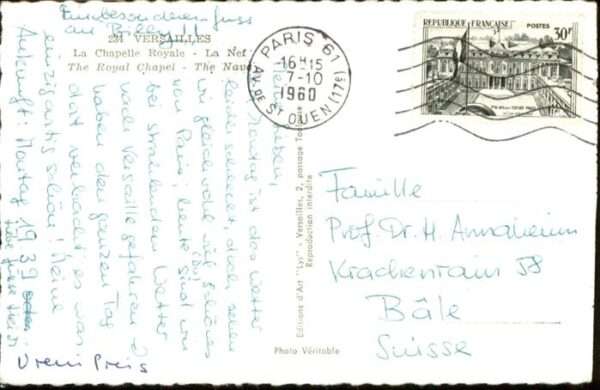 Einen besonderen Gruss
an
221 VERSAILLES
La Chapelle Royale - La Nef
The Royal Chapel - The Nave
PARIS 61
16H15
7-10
1960
AV. DE ST OUEN (17E)
REPUBLIQUE FRANÇAISE
POSTES
30F
ist das Wetter
leider schlecht, doch sehen
wir gleichwohl viel Schönes
von Paris; heute sind wir
bei strahlendem Wetter
nach Versaille gefahren &
haben den ganzen Tag
dort verbracht; es war
einzigartig schön! Meine
Ankunft: Montag 19 39
Vreni Preis
Editions d'Art "Lys" - Versailles, 2, passage
Reproduction interdite
Photo Véritable
Familie
Prof. Dr. H. Annaheim
Krachenrain 58
Bâle
Suisse